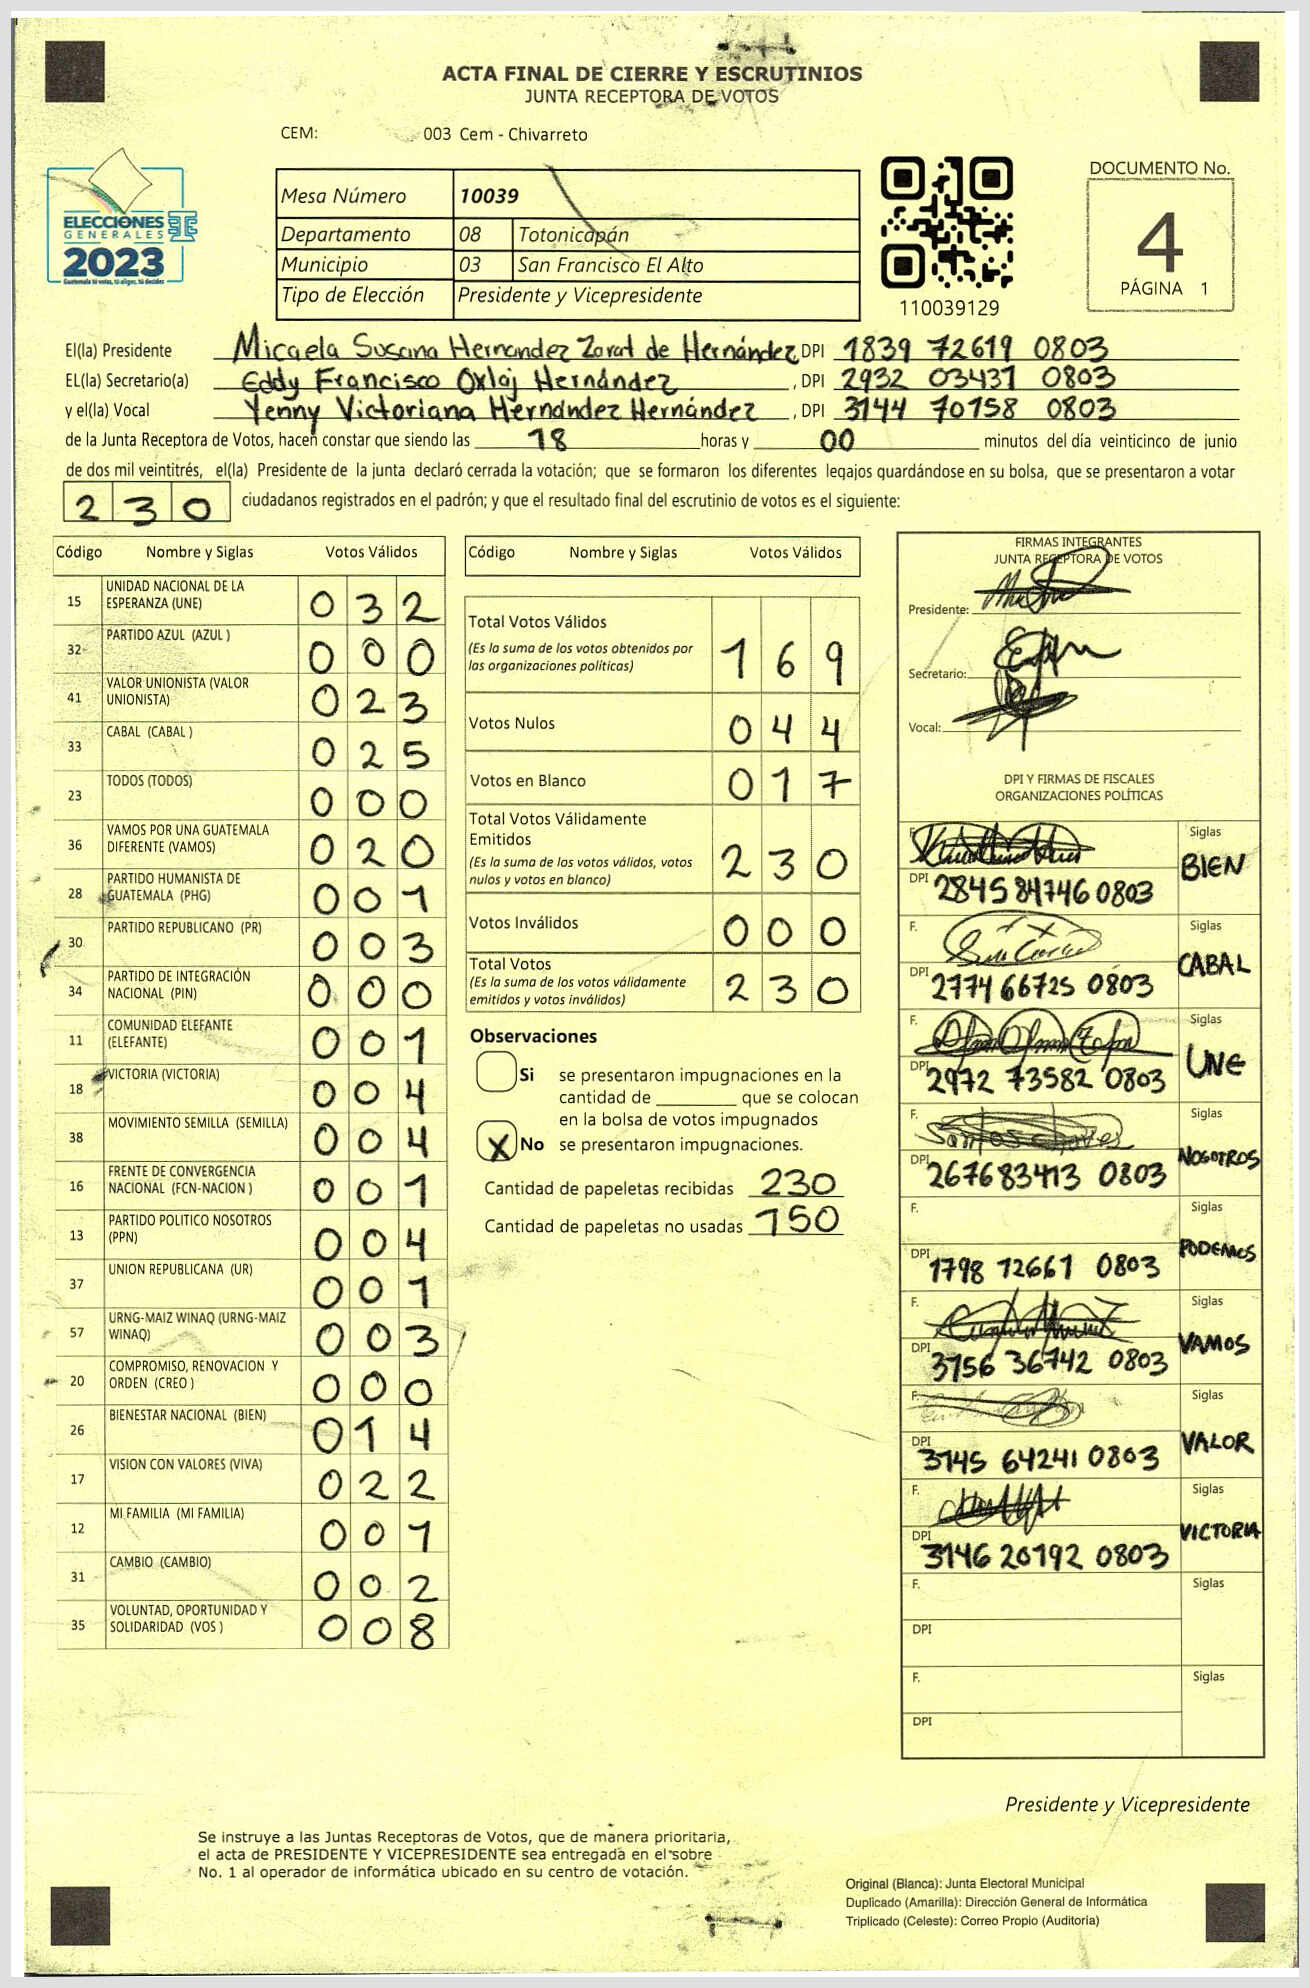 ACTA FINAL DE CIERRE Y ESCRUTINIOS
JUNTA RECEPTORA DE VOTOS
CEM: 003 Cem - Chivarreto
ELECCIONES
GENERALES
2023
Guatemala tú votas, tú eliges, tú decides
Mesa Número 10039
Departamento 08 Totonicapán
Municipio 03 San Francisco El Alto
Tipo de Elección Presidente y Vicepresidente
110039129
DOCUMENTO No.
4
PÁGINA 1
El(la) Presidente Micaela Susana Hernandez Zarat de Hernández DPI 1839 72619 0803
EL(la) Secretario(a) Eddy Francisco Oxlaj Hernández , DPI 2932 03431 0803
y el(la) Vocal Yenny Victoriana Hernández Hernández , DPI 3144 70158 0803
de la Junta Receptora de Votos, hacen constar que siendo las 18 horas y 00 minutos del día veinticinco de junio
de dos mil veintitrés, el(la) Presidente de la junta declaró cerrada la votación; que se formaron los diferentes legajos guardándose en su bolsa, que se presentaron a votar
230 ciudadanos registrados en el padrón; y que el resultado final del escrutinio de votos es el siguiente:
Código Nombre y Siglas Votos Válidos
15 UNIDAD NACIONAL DE LA ESPERANZA (UNE) 032
32 PARTIDO AZUL (AZUL ) 000
41 VALOR UNIONISTA (VALOR UNIONISTA) 023
33 CABAL (CABAL ) 025
23 TODOS (TODOS) 000
36 VAMOS POR UNA GUATEMALA DIFERENTE (VAMOS) 020
28 PARTIDO HUMANISTA DE GUATEMALA (PHG) 001
30 PARTIDO REPUBLICANO (PR) 003
34 PARTIDO DE INTEGRACIÓN NACIONAL (PIN) 000
11 COMUNIDAD ELEFANTE (ELEFANTE) 001
18 VICTORIA (VICTORIA) 004
38 MOVIMIENTO SEMILLA (SEMILLA) 004
16 FRENTE DE CONVERGENCIA NACIONAL (FCN-NACION ) 001
13 PARTIDO POLITICO NOSOTROS (PPN) 004
37 UNION REPUBLICANA (UR) 001
57 URNG-MAIZ WINAQ (URNG-MAIZ WINAQ) 003
20 COMPROMISO, RENOVACION Y ORDEN (CREO ) 000
26 BIENESTAR NACIONAL (BIEN) 014
17 VISION CON VALORES (VIVA) 022
12 MI FAMILIA (MI FAMILIA) 001
31 CAMBIO (CAMBIO) 002
35 VOLUNTAD, OPORTUNIDAD Y SOLIDARIDAD (VOS ) 008
Código Nombre y Siglas Votos Válidos
Total Votos Válidos
(Es la suma de los votos obtenidos por
las organizaciones políticas) 169
Votos Nulos 044
Votos en Blanco 017
Total Votos Válidamente
Emitidos
(Es la suma de los votos válidos, votos
nulos y votos en blanco) 230
Votos Inválidos 000
Total Votos
(Es la suma de los votos válidamente
emitidos y votos inválidos) 230
Observaciones
Si se presentaron impugnaciones en la
cantidad de ________ que se colocan
en la bolsa de votos impugnados
X No se presentaron impugnaciones.
Cantidad de papeletas recibidas 230
Cantidad de papeletas no usadas 150
FIRMAS INTEGRANTES
JUNTA RECEPTORA DE VOTOS
Presidente:
Secretario:
Vocal:
DPI Y FIRMAS DE FISCALES
ORGANIZACIONES POLÍTICAS
F. Siglas
DPI 2845 84746 0803 BIEN
F. Siglas
DPI 2774 66725 0803 CABAL
F. Siglas
DPI 2972 73582 0803 UNE
F. Santos Chaves Siglas
DPI 2676 83413 0803 NOSOTROS
F. Siglas
DPI 1798 12661 0803 PODEMOS
F. Siglas
DPI 3156 36742 0803 VAMOS
F. Siglas
DPI 3145 64241 0803 VALOR
F. Siglas
DPI 3146 20192 0803 VICTORIA
F. Siglas
DPI
F. Siglas
DPI
Presidente y Vicepresidente
Se instruye a las Juntas Receptoras de Votos, que de manera prioritaria,
el acta de PRESIDENTE Y VICEPRESIDENTE sea entregada en el sobre
No. 1 al operador de informática ubicado en su centro de votación.
Original (Blanca): Junta Electoral Municipal
Duplicado (Amarilla): Dirección General de Informática
Triplicado (Celeste): Correo Propio (Auditoría)